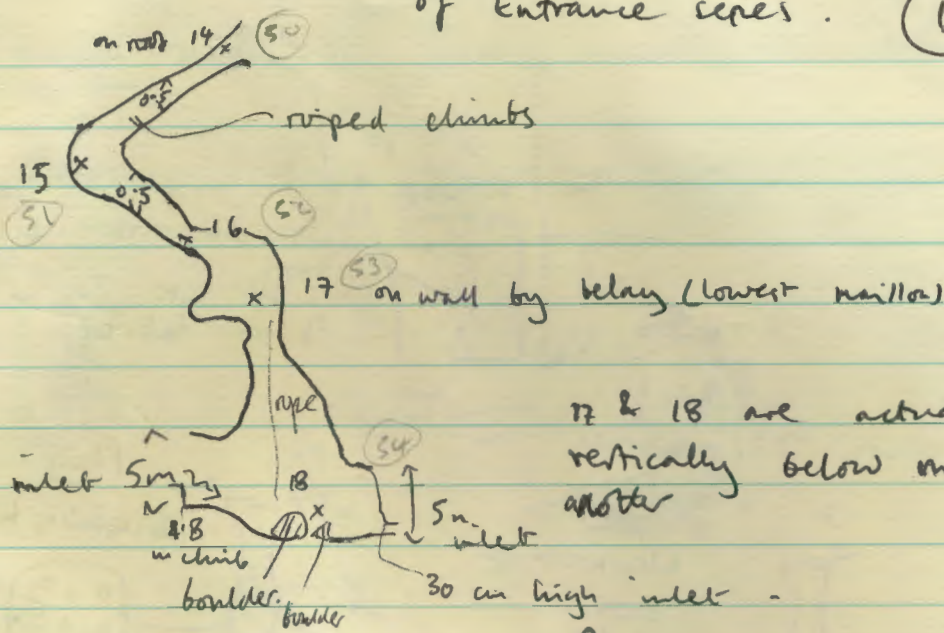 of Entrance series.
on roof 14 (50)
0.5
roped climbs
15
(51)
0.5
16 (52)
17 (53) on wall by belay (lowest maillon)
rope
17 & 18 are actu
vertically below on
another
(54)
inlet 5m
18
5m
inlet
m climb
boulder.
boulder
30 cm high inlet -